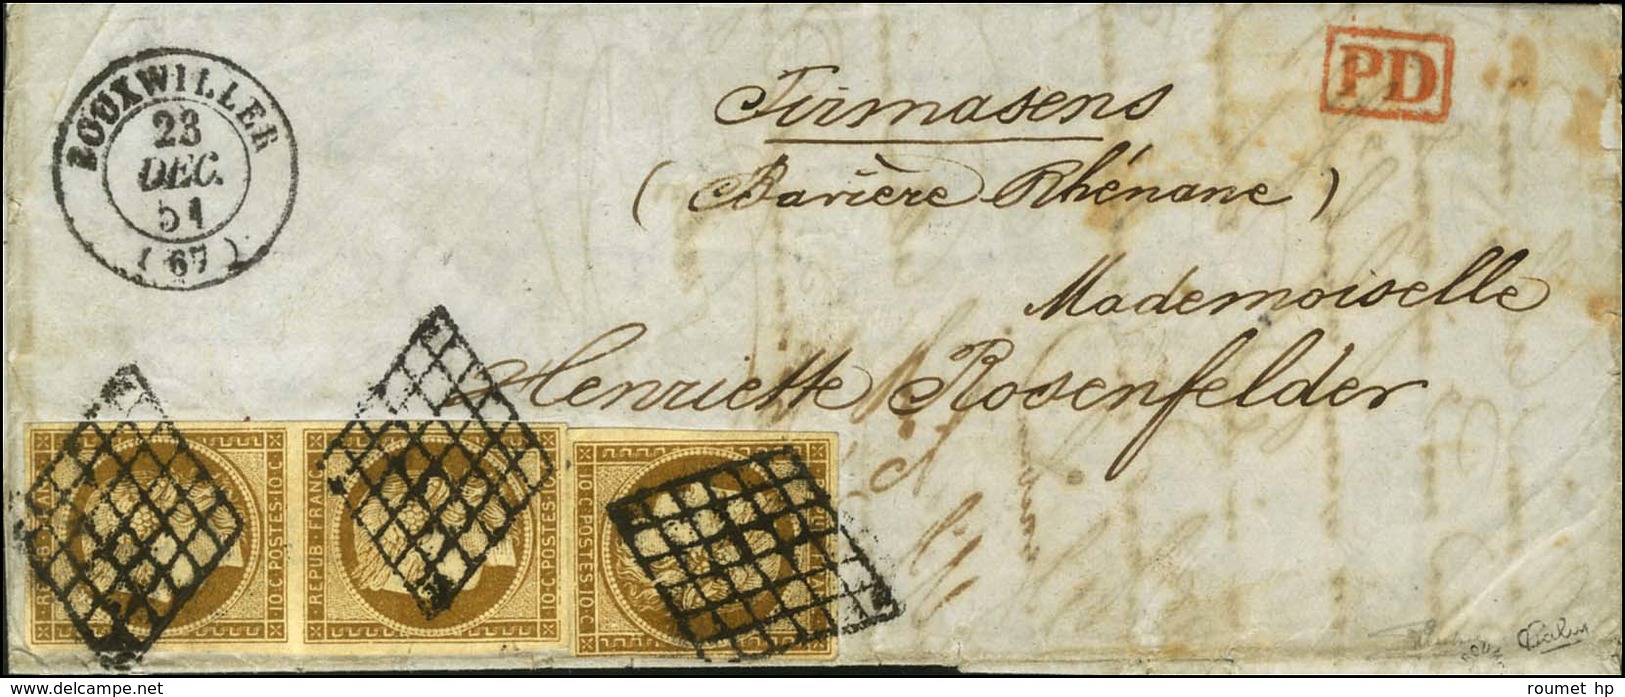 BOUXWILLER
23
DEC.
51
(67)
PD
Pirmasens
(Bavière Rhénane)
Mademoiselle
Henriette Rosenfelder
REPUB. FRANC.
10·C·POSTES·10·C
REPUB·FRANC
10·C·POSTES·10·C
10·C·POSTES·10·C
Calves
www.delcampe.net
roumet hp